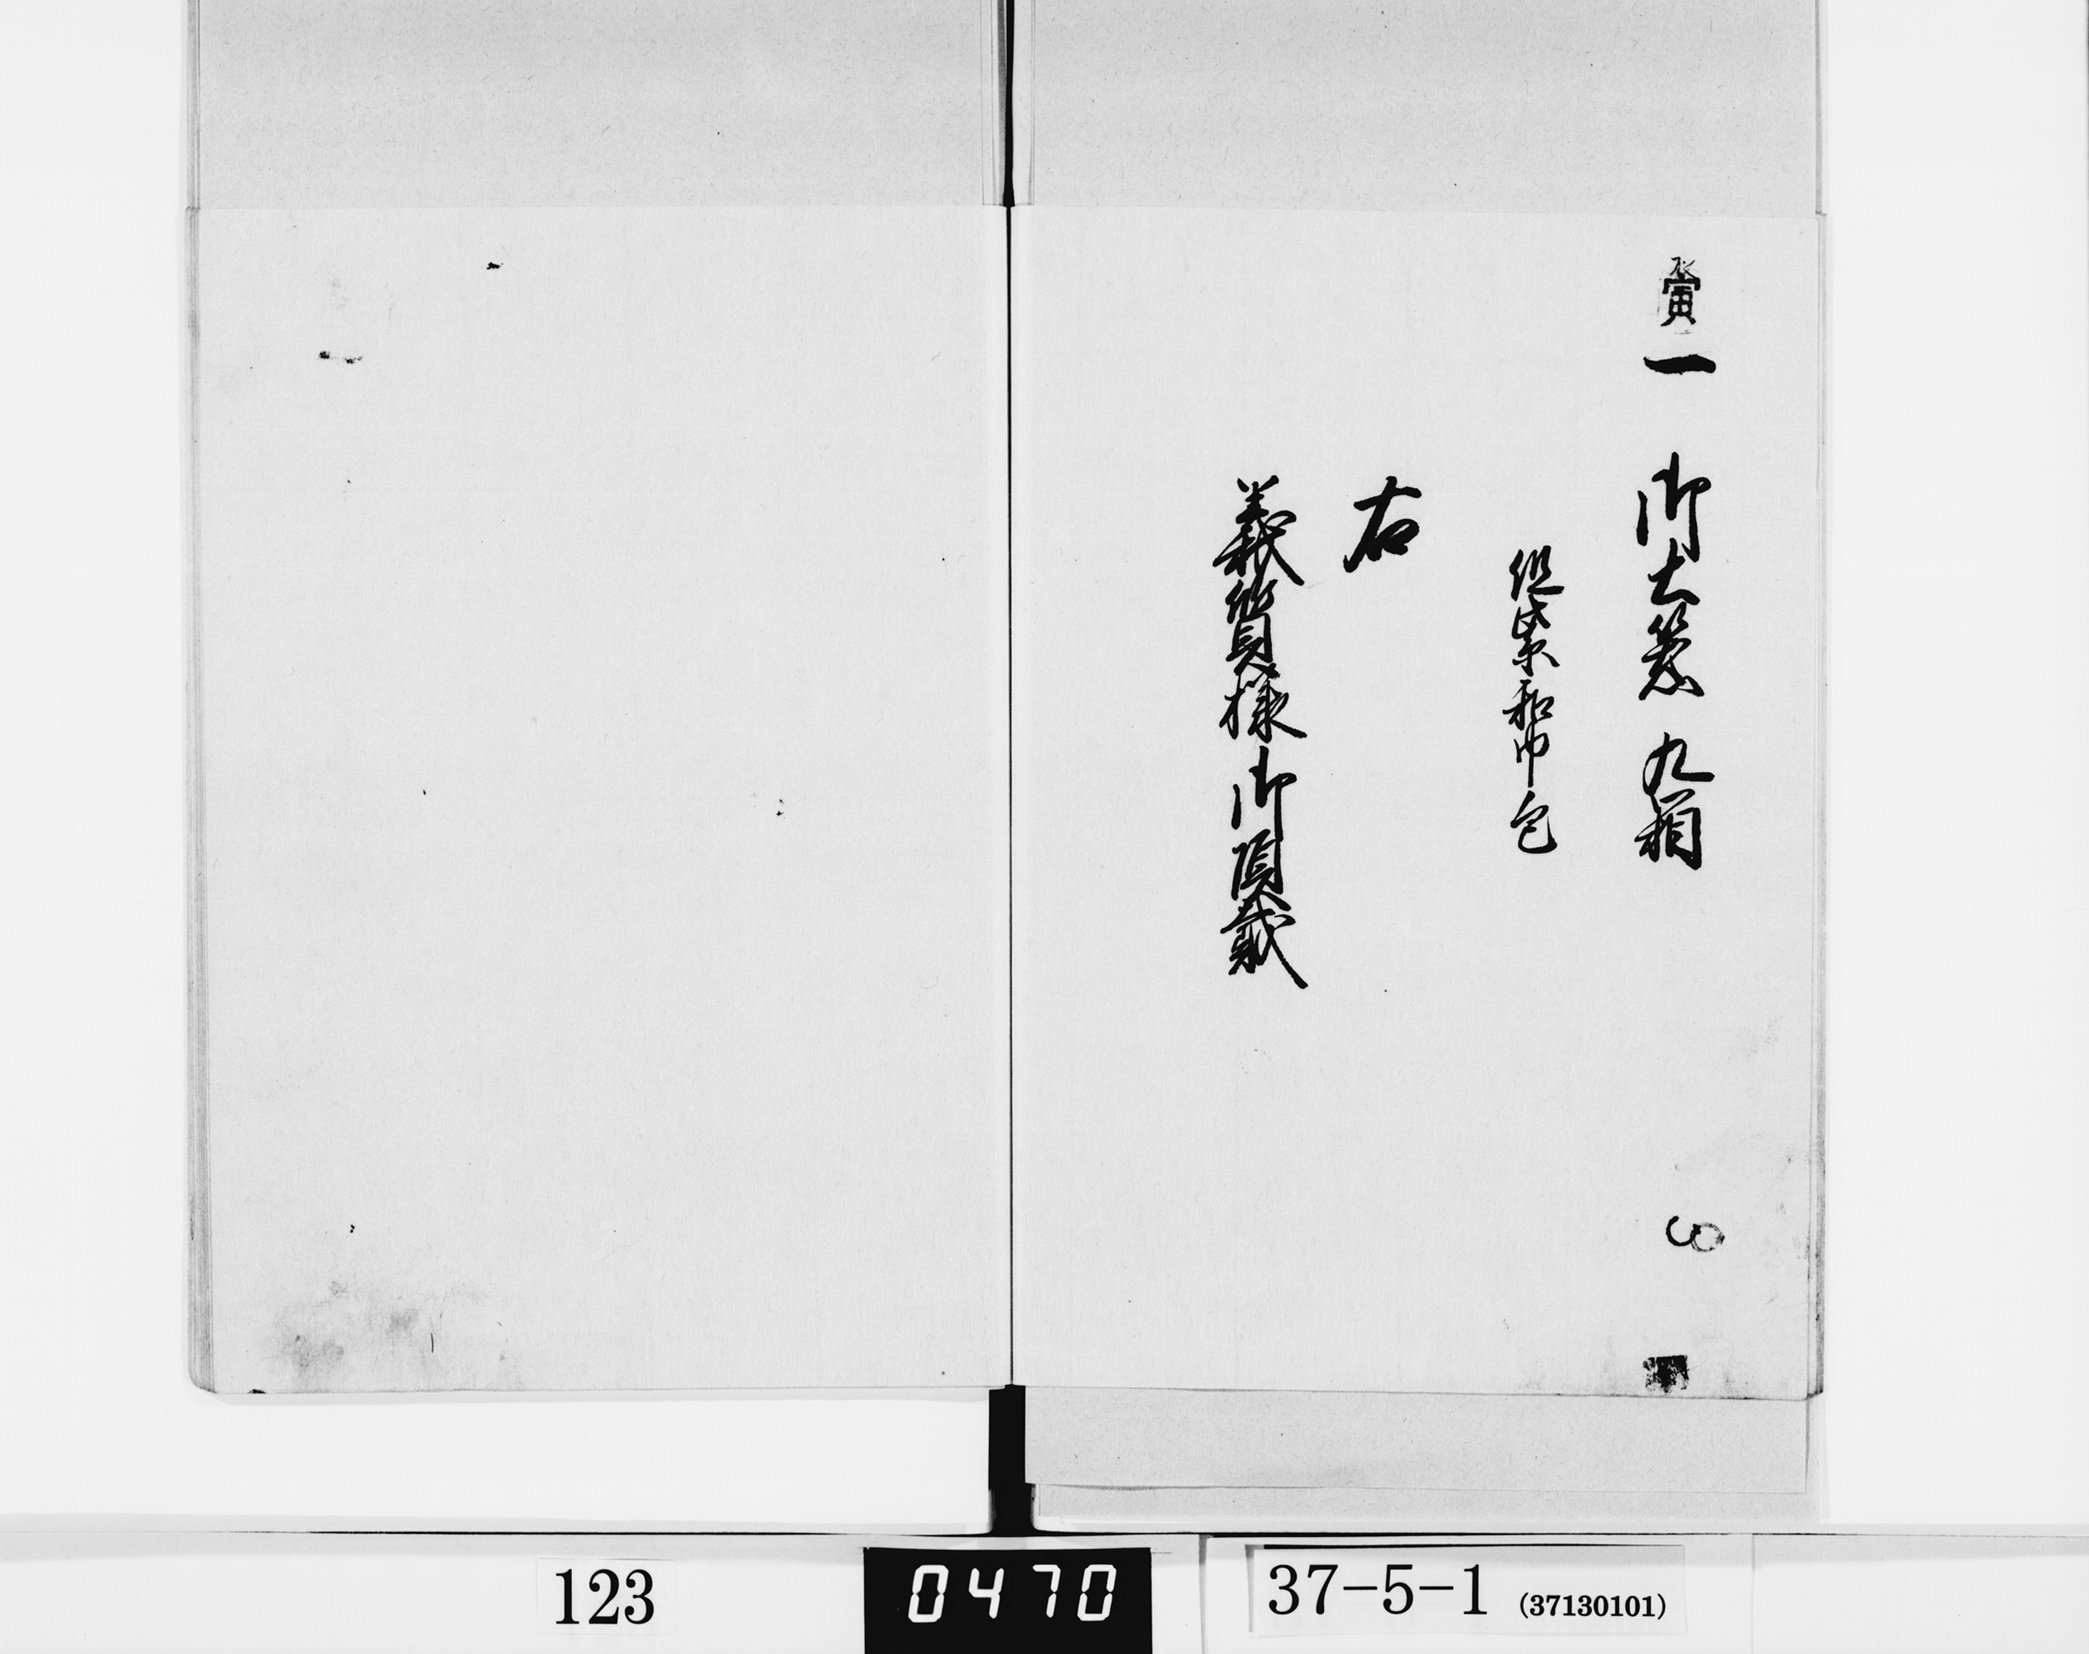 寅
一 御大箱 九箱
但紫和巾包
右
義質様御頂戴
123
0470
37-5-1 (37130101)